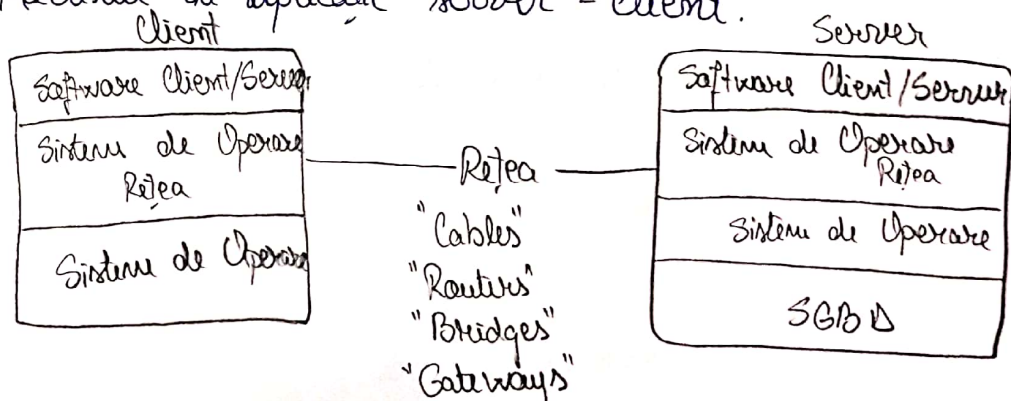 aplicație server - client.
Client
Software Client/Server
Sistem de Operare
Rețea
Sistem de Operare
Rețea
"Cables"
"Routers"
"Bridges"
"Gateways"
Server
Software Client/Server
Sistem de Operare
Rețea
Sistem de Operare
SGBD